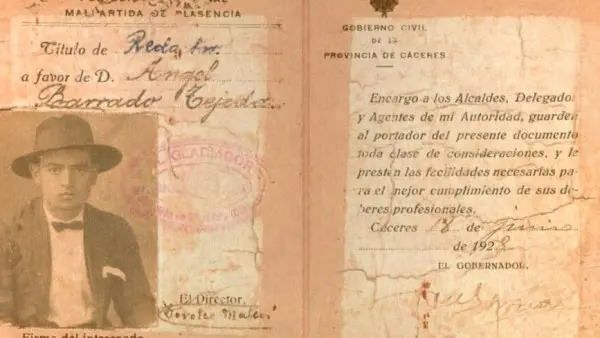 MALPARTIDA DE PLASENCIA
Título de Redactor
a favor de D. Angel
Barrado Tejeda
GLADIADOR
El Director,
Firma del interesado
GOBIERNO CIVIL
DE LA
PROVINCIA DE CÁCERES
Encargo a los Alcaldes, Delegados
y Agentes de mi Autoridad, guarden
al portador del presente documento
toda clase de consideraciones, y le
presten las facilidades necesarias pa-
ra el mejor cumplimiento de sus de-
beres profesionales.
Cáceres 18 de Junio
de 1928
EL GOBERNADOR,